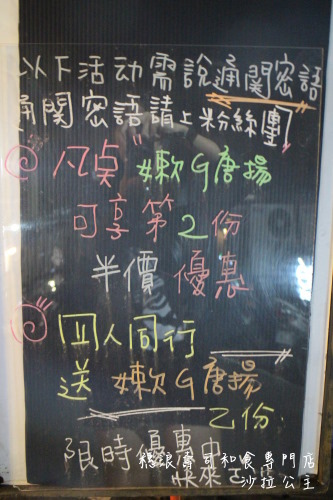 以下活动需說通関密語
通関密語請上粉絲團
凡点"嫰G唐揚
可享第2份
半價優惠
四人同行
送嫰G唐揚
乙份.
限時優惠中
和食專門店
沙拉公主